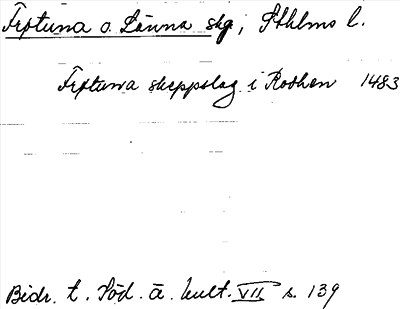 Frötuna o. Länna skg, Sthlms l.
Frötuna skeppslag i Roohen 1483
Bidr. t. Söd. ä. kult. VII s. 139